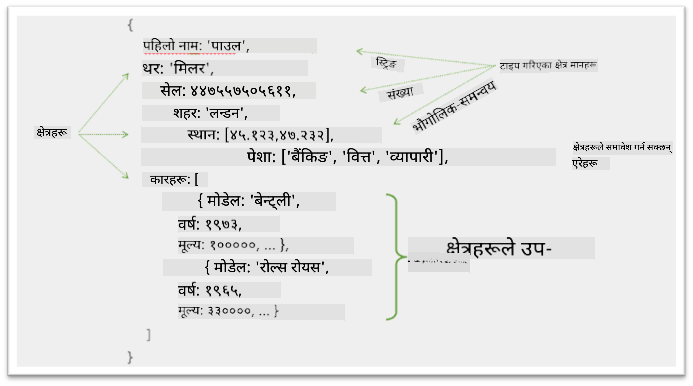 {
पहिलो नाम: 'पाउल',
थर: 'मिलर',
सेल: ४४७५५७५०५६११,
शहर: 'लन्डन',
स्थान: [४५.१२३,४७.२३२],
पेशा: ['बैंकिङ', 'वित्त', 'व्यापारी'],
कारहरू: [
{ मोडेल: 'बेन्ट्ली',
वर्ष: १९७३,
मूल्य: १०००००, ... },
{ मोडेल: 'रोल्स रोयस',
वर्ष: १९६५,
मूल्य: ३३००००, ... }
]
}
क्षेत्रहरू
स्ट्रिङ
संख्या
भौगोलिक-समन्वय
टाइप गरिएका क्षेत्र मानहरू
क्षेत्रहरूले समावेश गर्न सक्छन्
एरेहरू
क्षेत्रहरूले उप-